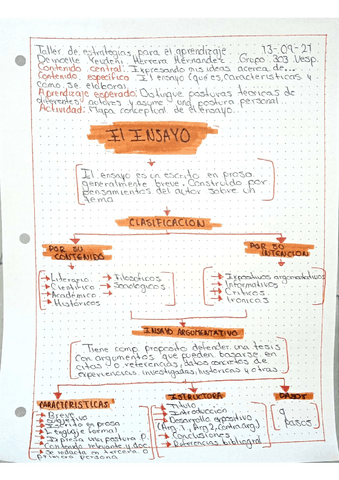 Taller de estrategias para el aprendizaje. 13-09-21
Herrera Hernández Grupo: 303 Vesp.
Contenido central: Expresando mis ideas acerca de...
Contenido específico: El ensayo (qué es, características y
cómo se elabora)
Aprendizaje esperado: Distingue posturas teóricas de
diferentes autores y asume una postura personal
Actividad: Mapa conceptual de el ensayo.
El ENSAYO
El ensayo es un escrito en prosa
generalmente breve. Construido por
pensamientos del autor sobre un
tema
CLASIFICACION
POR SU
CONTENIDO
POR SU
INTENCION
Literario
Científico
Académico
Históricos
Filosóficos
Sociológicos
Expositivos argumentativos
Informativos
Críticos
Irónicas
ENSAYO ARGUMENTATIVO
Tiene como proposito defender una tesis
con argumentos que pueden basarse en
citas o referencias, datos concretos de
experiencias investigadas, históricas y otras.
CARACTERISTICAS
Breve
Subjetivo
Escrito en prosa
Lenguaje formal
Expresa una postura p.
Contenido relevante y doc.
Se redacta en tercera o
primera persona
ESTRUCTURA
Titulo
Introducción
Desarrollo apositivo
(Arg. 1, Arg 2, Contra arg.)
Conclusiones
Referencias bibliograf.
PASOS
9
Pasos